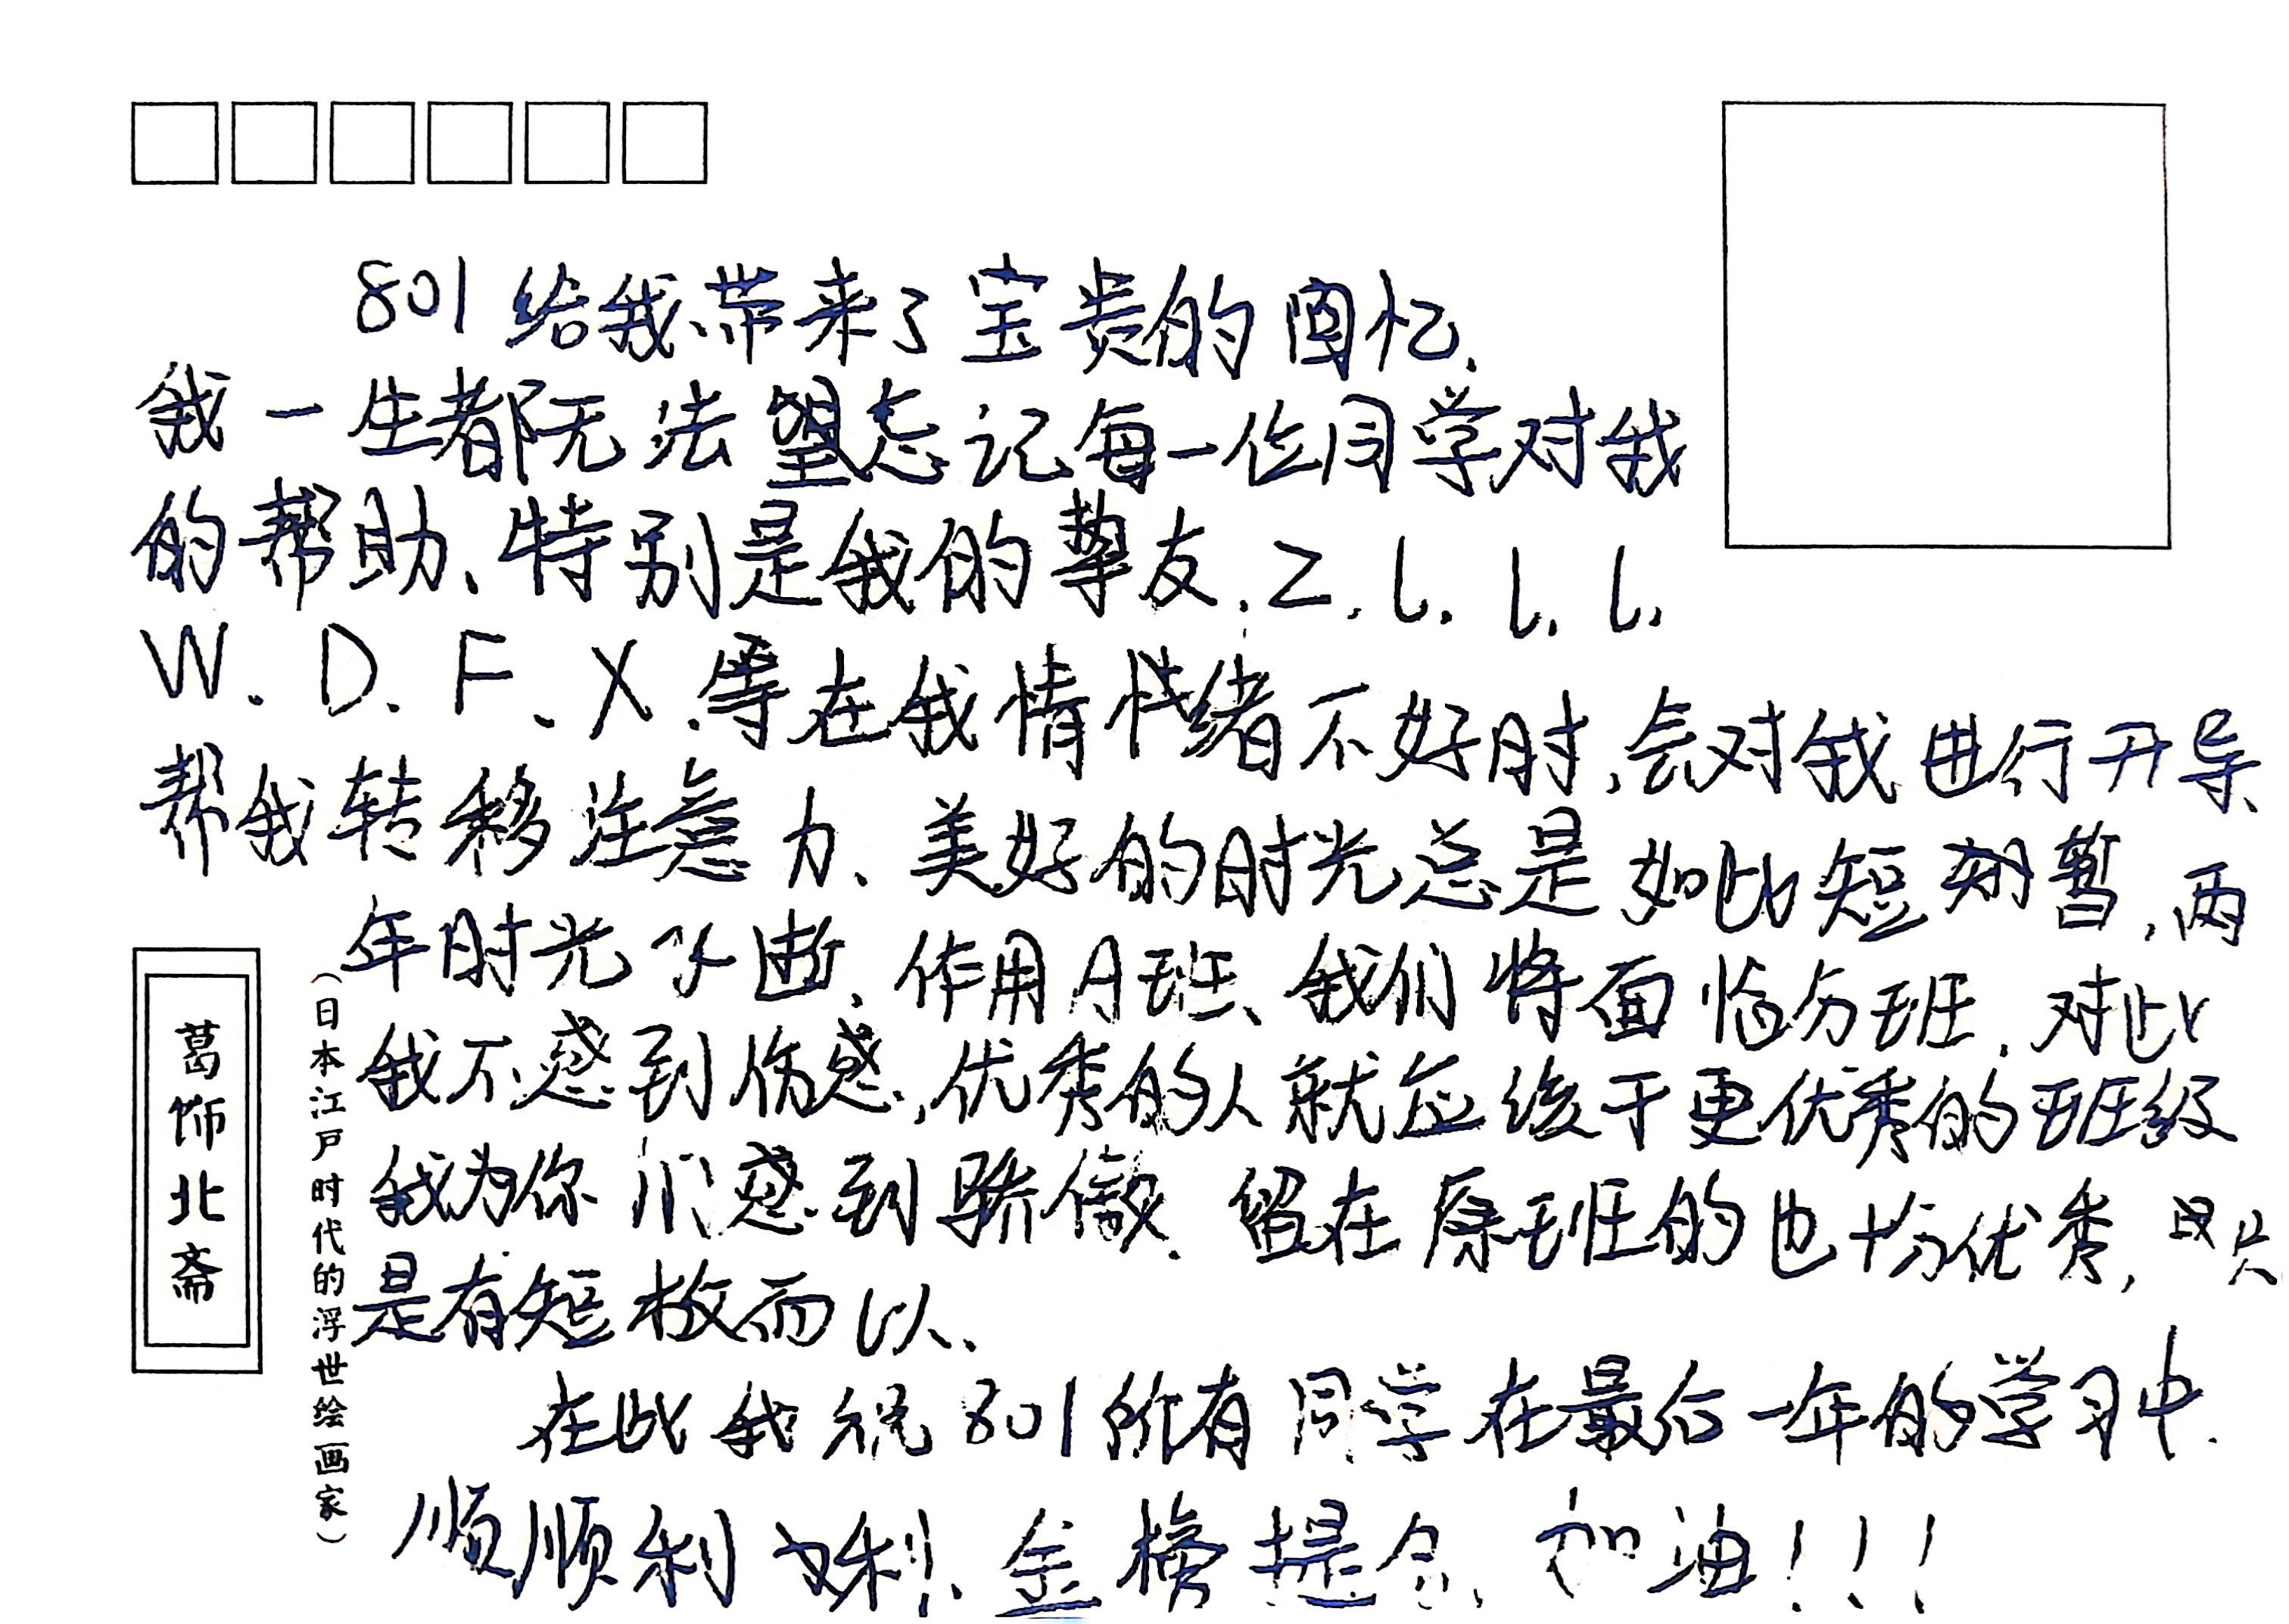 801给我带来了宝贵的回忆.
我一生都无法忘记每一位同学对我
的帮助、特别是我的挚友.Z.l.l.l.
W.D.F.X.等在我情绪不好时,会对我进行开导、
帮我转移注意力、美好的时光总是如此短暂,两
年时光飞逝,作用A班、我们将面临分班.对此
我不感到伤感,优秀的人就应该于更优秀的班级
我为你们感到骄傲.留在原班的也十分优秀,只
是有短板而以、
在此我祝801所有同学在最后一年的学习中.
顺顺利利、金榜提名、加油!!!
葛饰北斋
(日本江户时代的浮世绘画家)